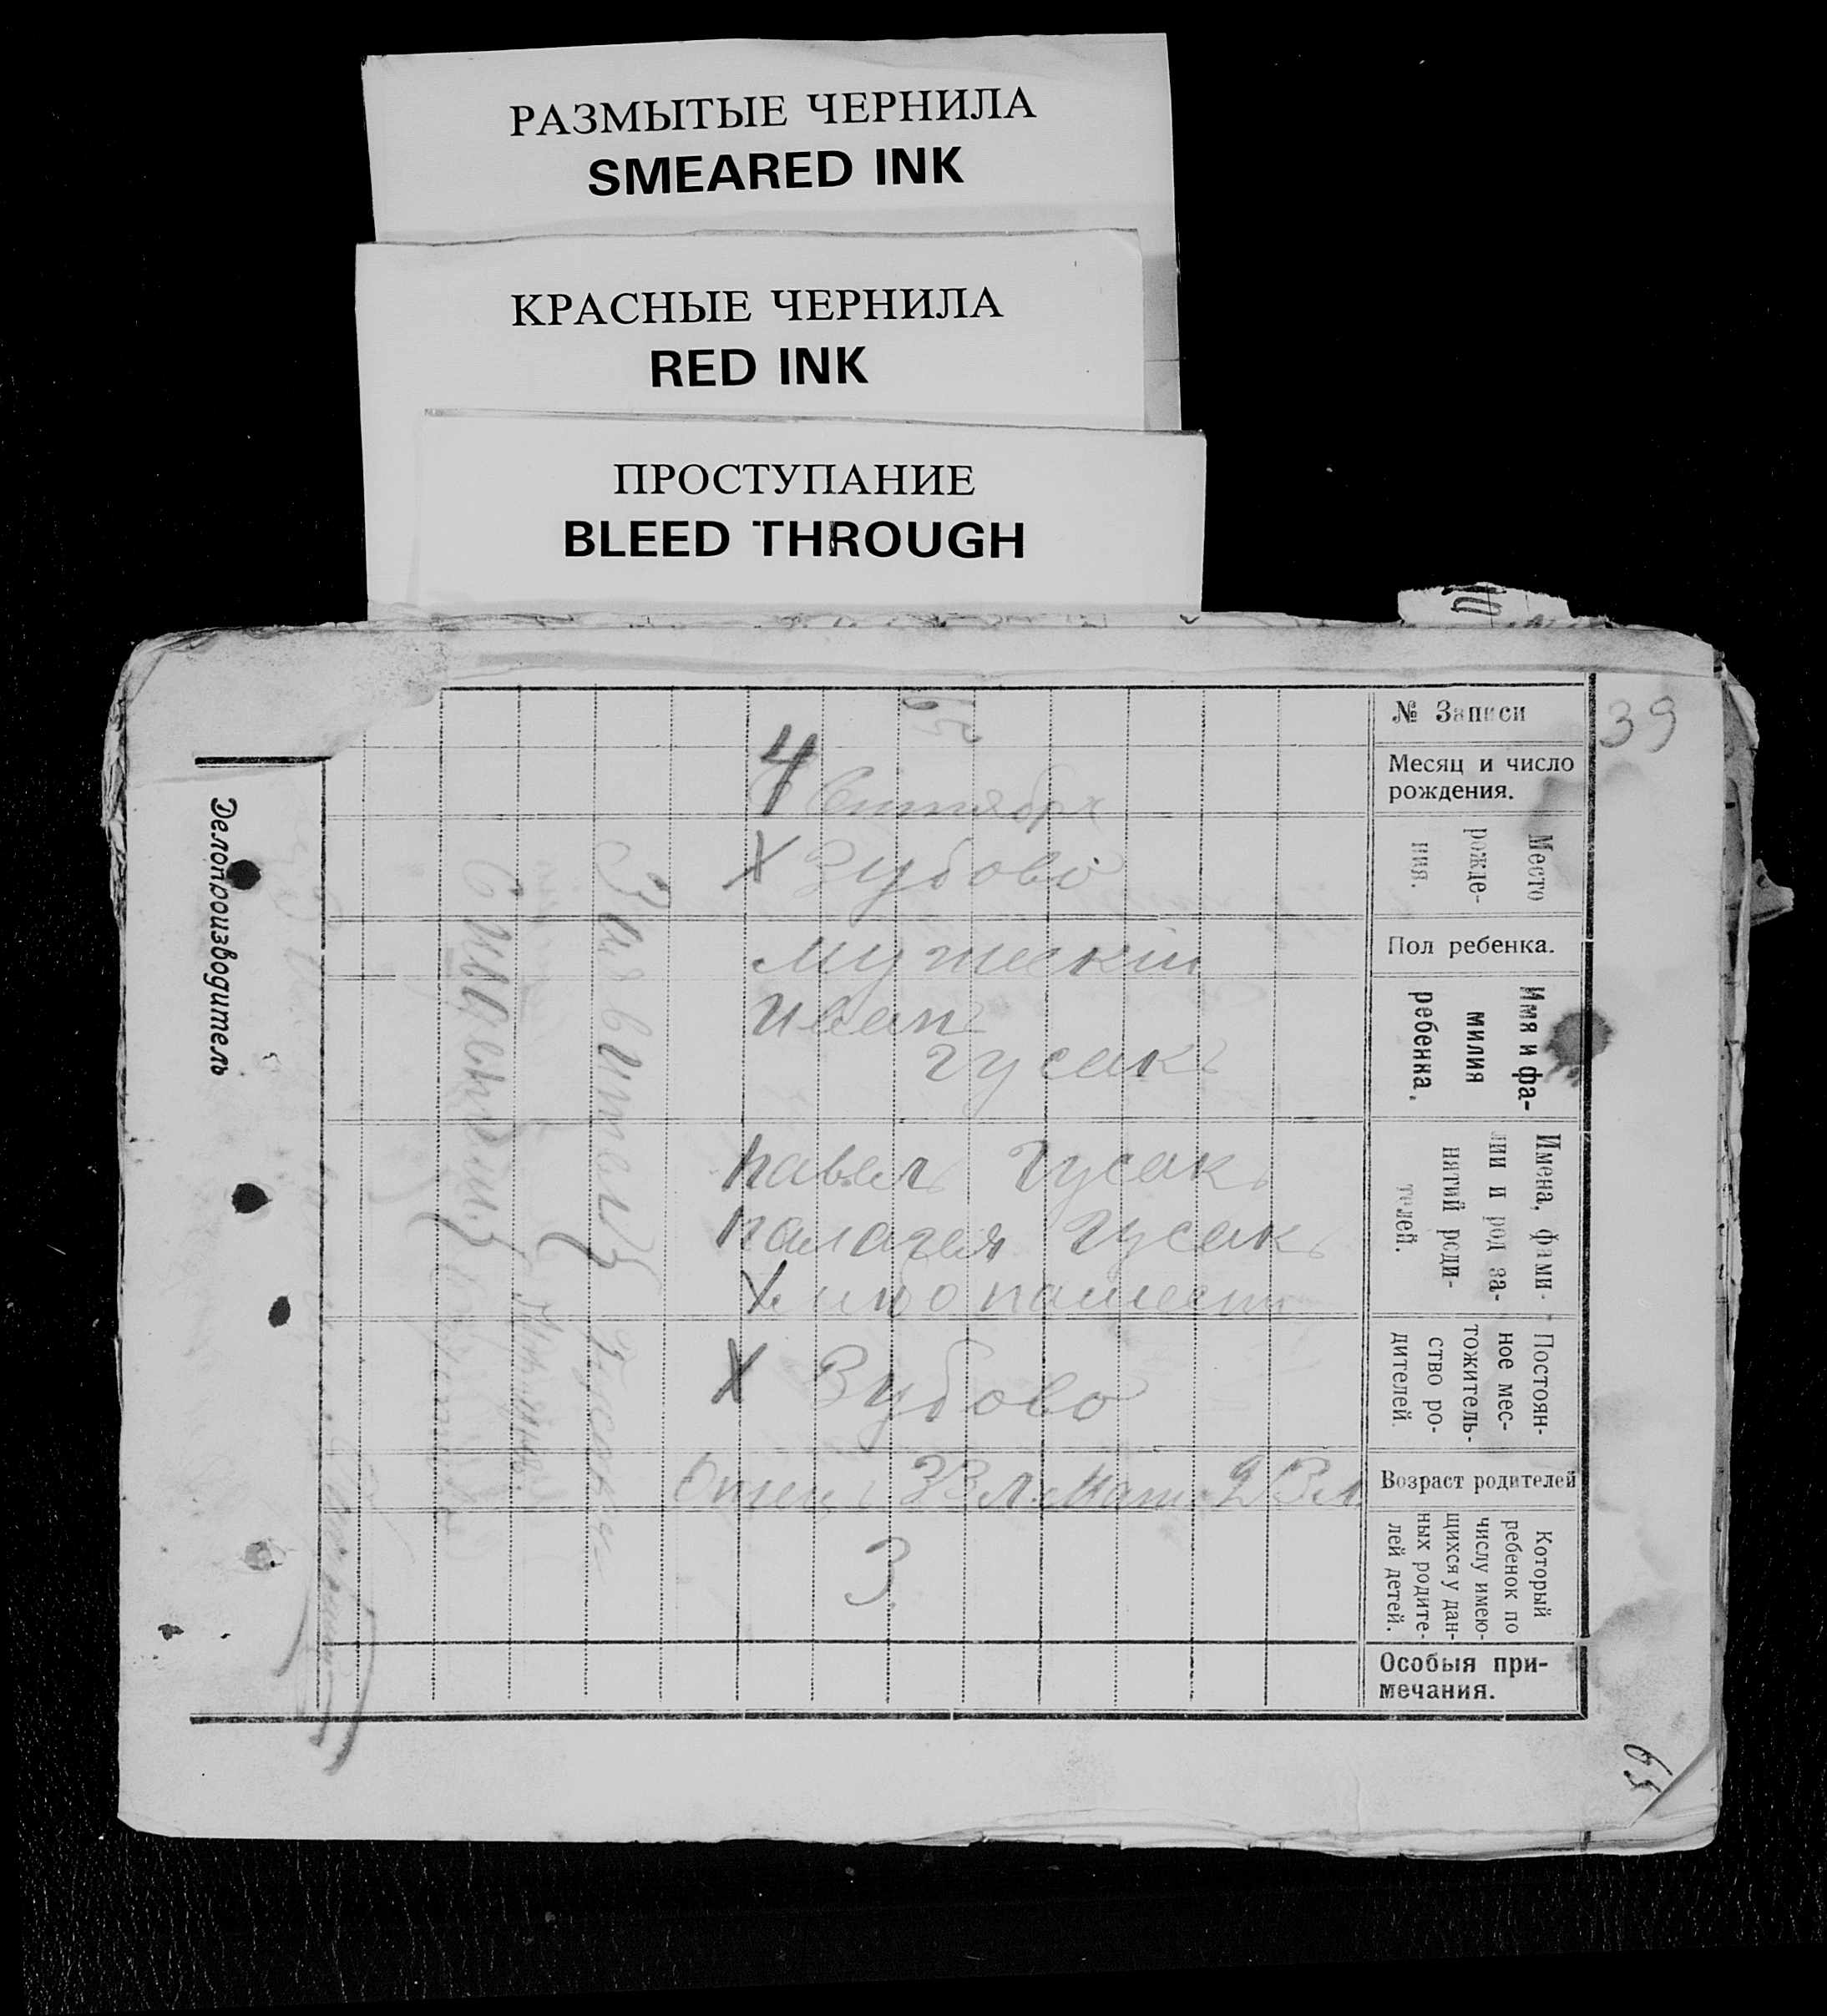 РАЗМЫТЫЕ ЧЕРНИЛА
SMEARED INK
КРАСНЫЕ ЧЕРНИЛА
RED INK
ПРОСТУПАНИЕ
BLEED THROUGH
39
№ Записи
Месяц и число
рождения.
4
Сентября
Место
рожде-
ния.
Х Зубово
Пол ребенка.
мужескій
Имя и фа-
милия
ребенка.
Иванъ
Гусакъ
Имена, фами-
лии и род за-
нятий роди-
телей.
Павелъ Гусакъ
Палагея Гусакъ
Постоян-
ное мес-
тожитель-
ство ро-
дителей
Х Зубово
Возраст родителей
Отец 33 л. Мат. 23 л
Который
ребенок по
числу имею-
щихся у дан-
ных родите-
лей детей.
3
Особыя при-
мечания.
Заявитель Гусакъ
Делопроизводитель
65